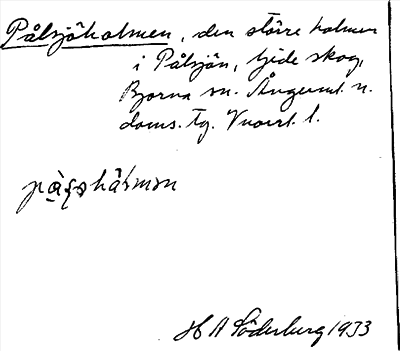 Pålsjöholmen, den större holmen
i Pålsjön, Gide skog,
Bjorna sn. Ångerml. n.
doms. tg. Vnorrl. l.
H A Söderberg 1933